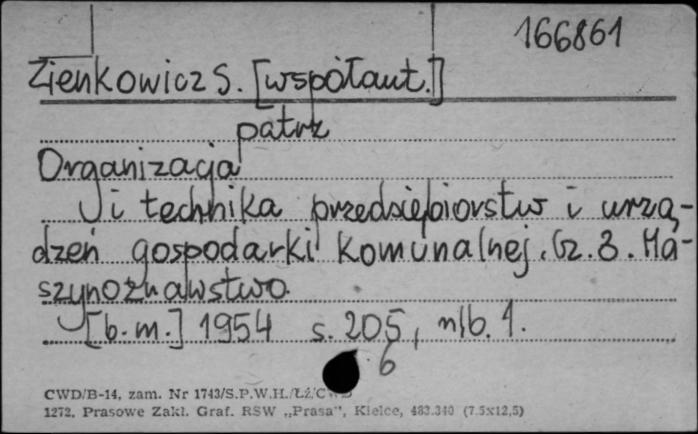 166861
Zienkowicz S. [współaut.]
patrz
Organizacja
i technika przedsiębiorstw i urzą-
dzeń gospodarki komunalnej. Cz. 3. Ma-
szynoznawstwo
[b. m.] 1954 s. 205, nlb. 1.
6
CWD/B-14, zam. Nr 1743/S.P.W.H./Łź/CWD
1272. Prasowe Zakł. Graf. RSW „Prasa”, Kielce, 483.340 (7.5x12,5)